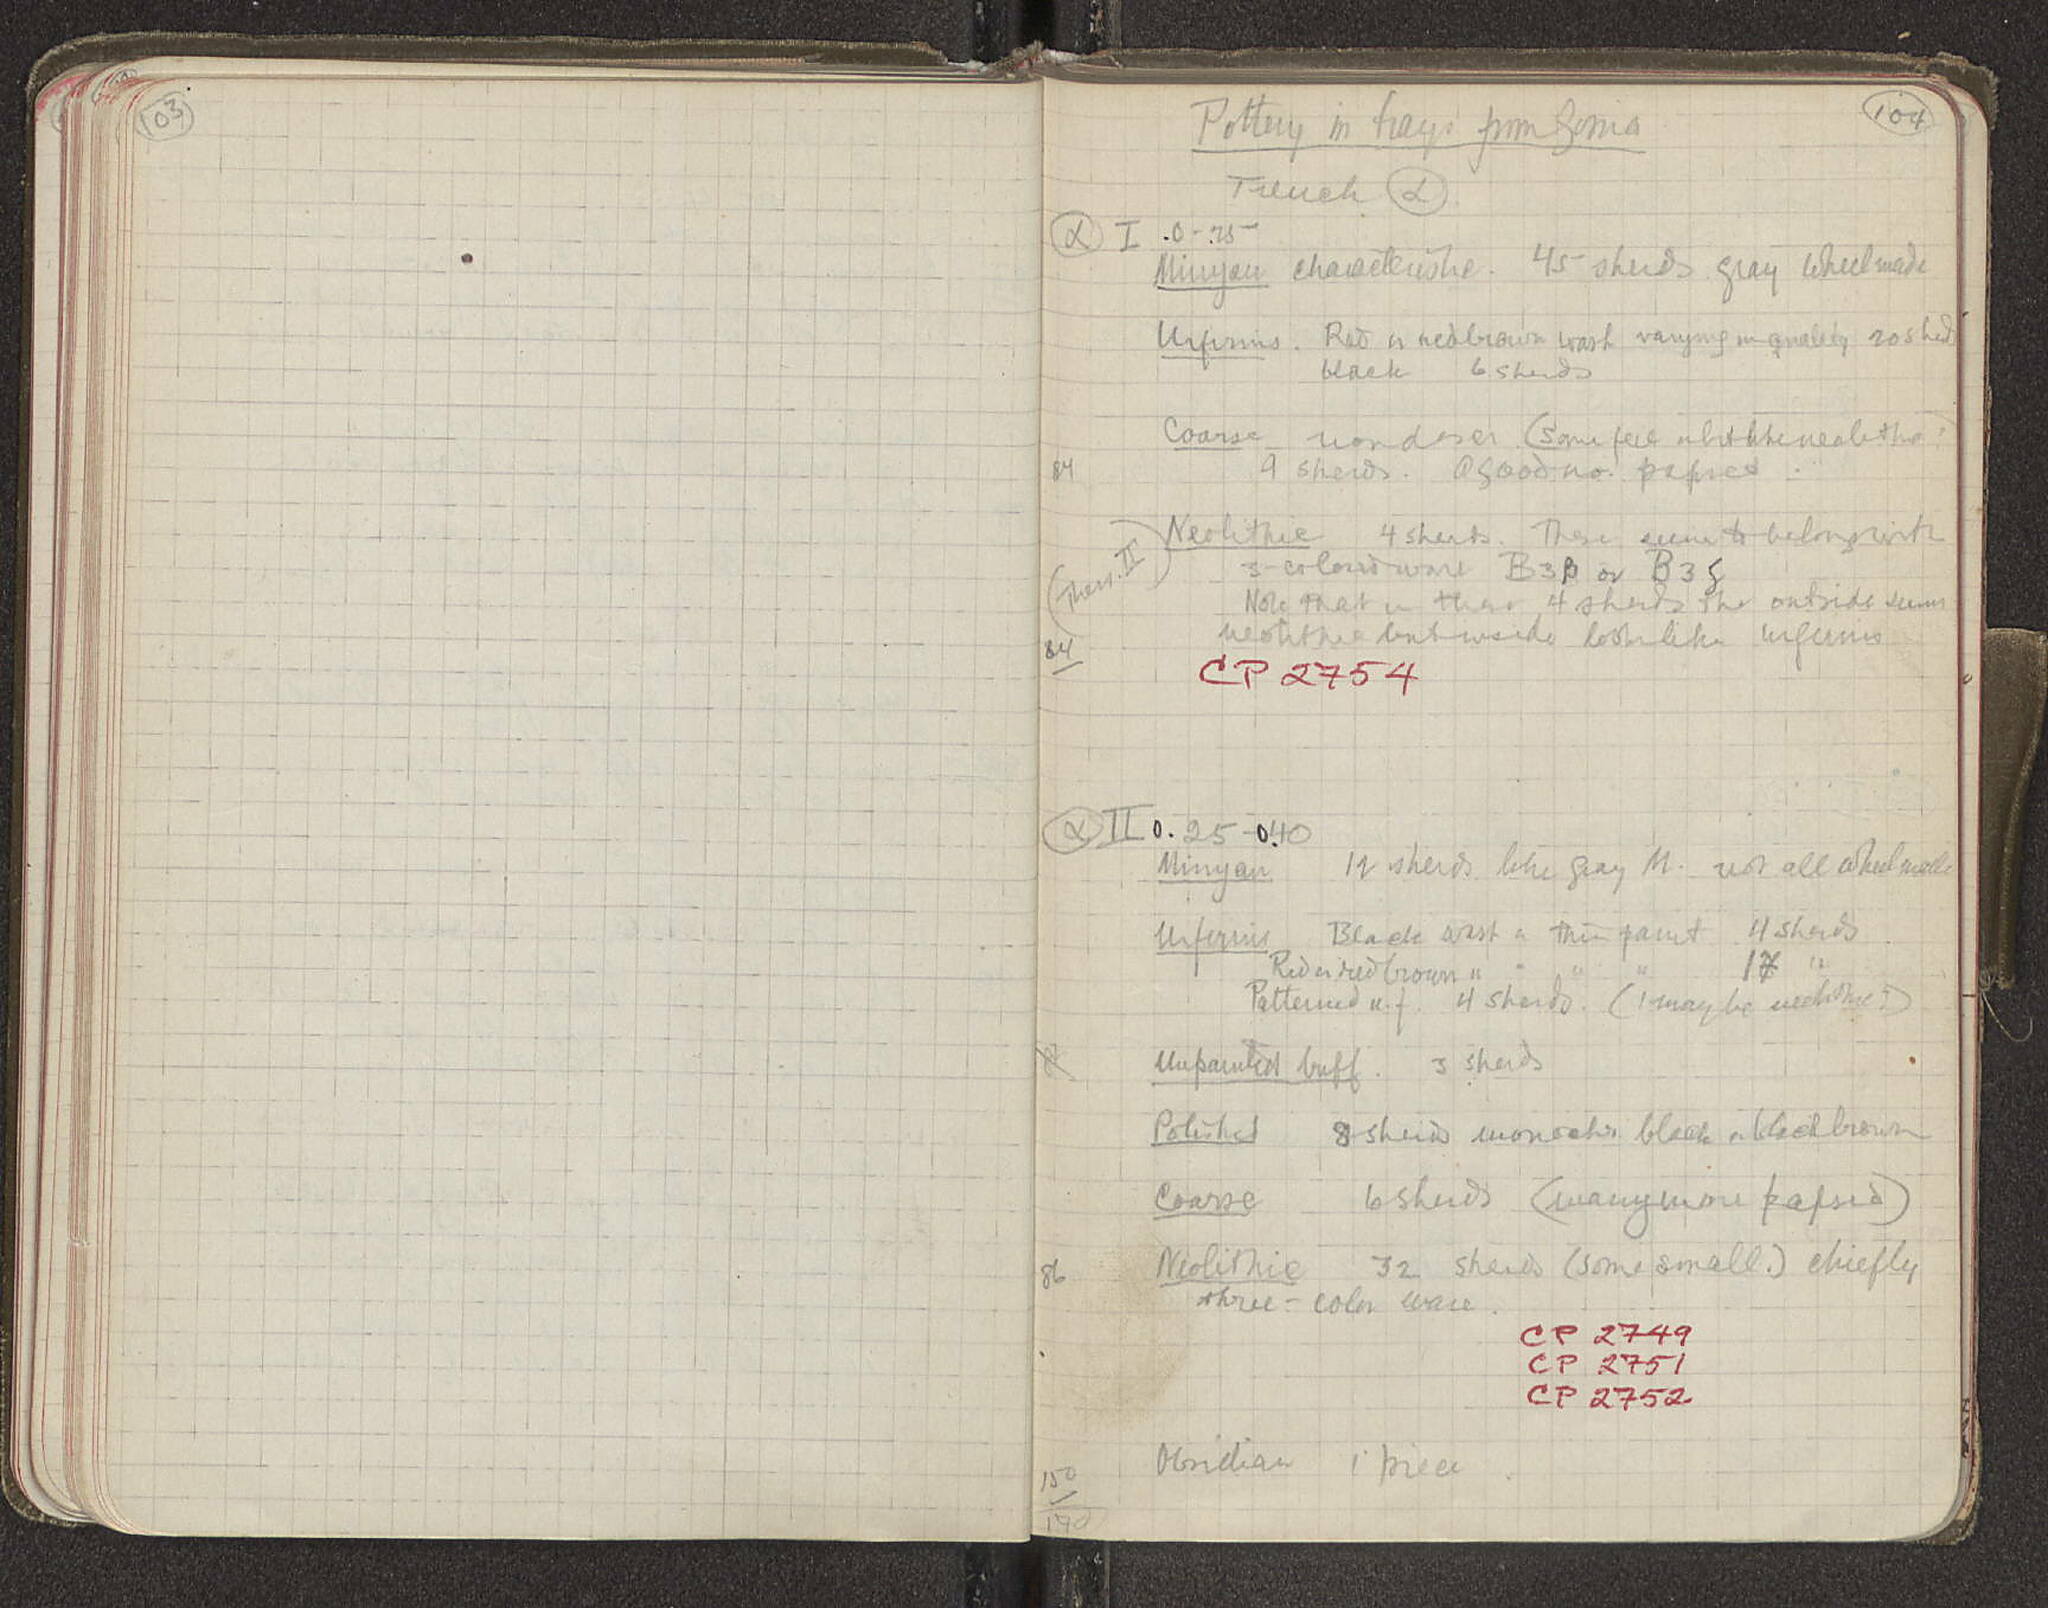 103
104
Pottery in trays from Gonia
Trench α
α I .0-.25
Minyan characteristic. 45 sherds gray wheelmade
Urfirnis. Red or redbrown wash varying in quality 20 sherds
black 6 sherds
Coarse (some feel a bit like neolithic?)
84 9 sherds. A good no.
Neolithic 4 sherds. These seem to belong with
(Thess. II) 3-colored ware B3β or B3ζ
Note that in these 4 sherds the outside seems
neolithic but inside looks like urfirnis
84
CP 2754
α II 0.25-0.40
Minyan 12 sherds like gray M. not all wheelmade
Urfirnis Black wash or thin paint 4 sherds
Red or redbrown " " " " 17 "
Patterned u.f. 4 sherds. (1 may be neolithic?)
Unpainted buff. 3 sherds
Polished 8 sherds monochr. black or blackbrown
Coarse 6 sherds (many more)
86 Neolithic 32 sherds (some small.) chiefly
three-color ware.
CP 2749
CP 2751
CP 2752
Obsidian 1 piece
150
190